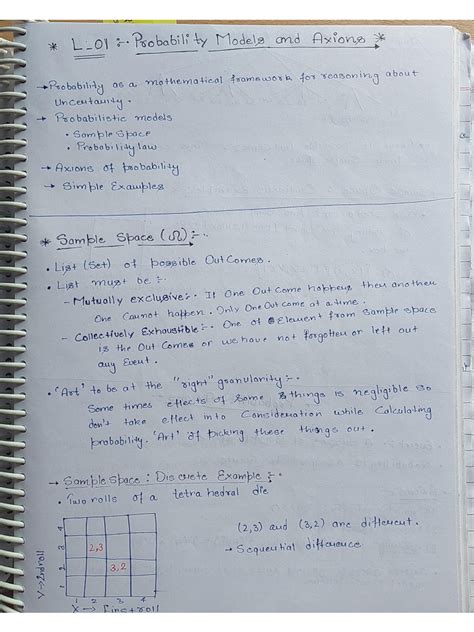 * L_01 :- Probability Models and Axioms *
→ Probability as a mathematical framework for reasoning about
Uncertainty.
→ Probabilistic models
• Sample Space
• Probability law
→ Axioms of probability
→ Simple Examples
* Sample Space (Ω) :-
• List (Set) of possible OutComes.
• List must be :-
- Mutually exclusive :- If One OutCome happens then another
One Cannot happen. Only One OutCome at a time.
- Collectively Exhaustible :- One of Element from Sample space
is the OutComes or we have not forgotten or left out
any Event.
• 'Art' to be at the "right" granularity :-
Some times effects of Some things is negligible so
don't take effect into Consideration while Calculating
probability. 'Art' of picking these things out.
→ Sample space : Discrete Example :-
• Two rolls of a tetra hedral die
(2,3) and (3,2) are different.
→ Sequential difference
4
3
2
1
2,3
3,2
Y → 2nd roll
1 2 3 4
X → First roll